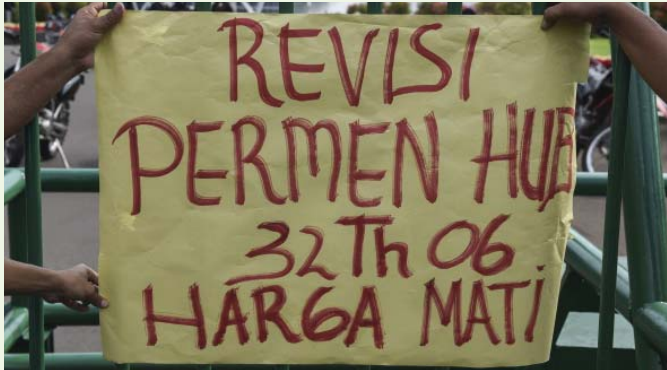 REVISI
PERMEN HUB
32 Th 06
HARGA MATI